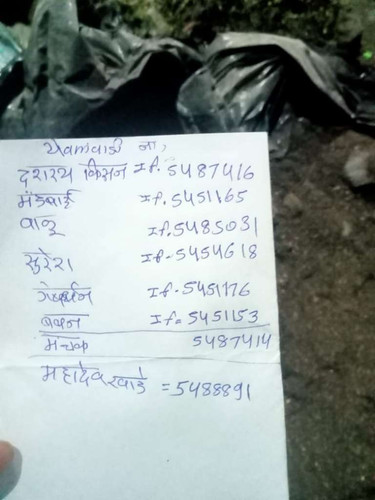 येवलवाडी ना,
दशरथ किसन If. 5487416
मंडबाई If. 5451165
बाळू If. 5485031
सुरेश If- 5454618
गोवर्धन If- 5451176
बबन If= 5451153
मंचक 5487414
महादेव खाडे = 5488891